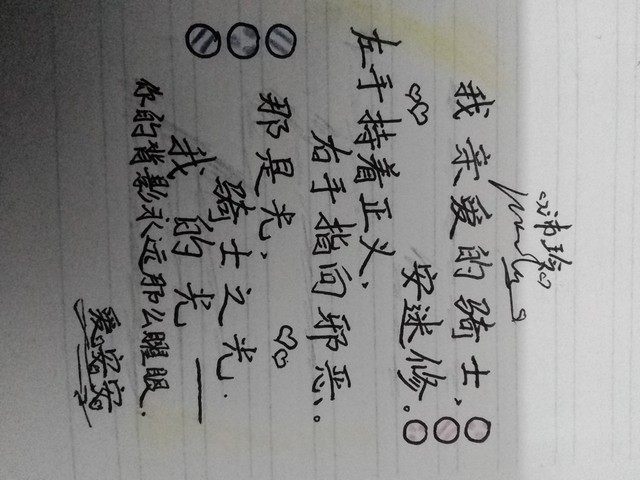 我亲爱的骑士，
安迷修。
左手持着正义，
右手指向邪恶。
那是光，
骑士之光.
我的光——
你的背影永远那么耀眼.